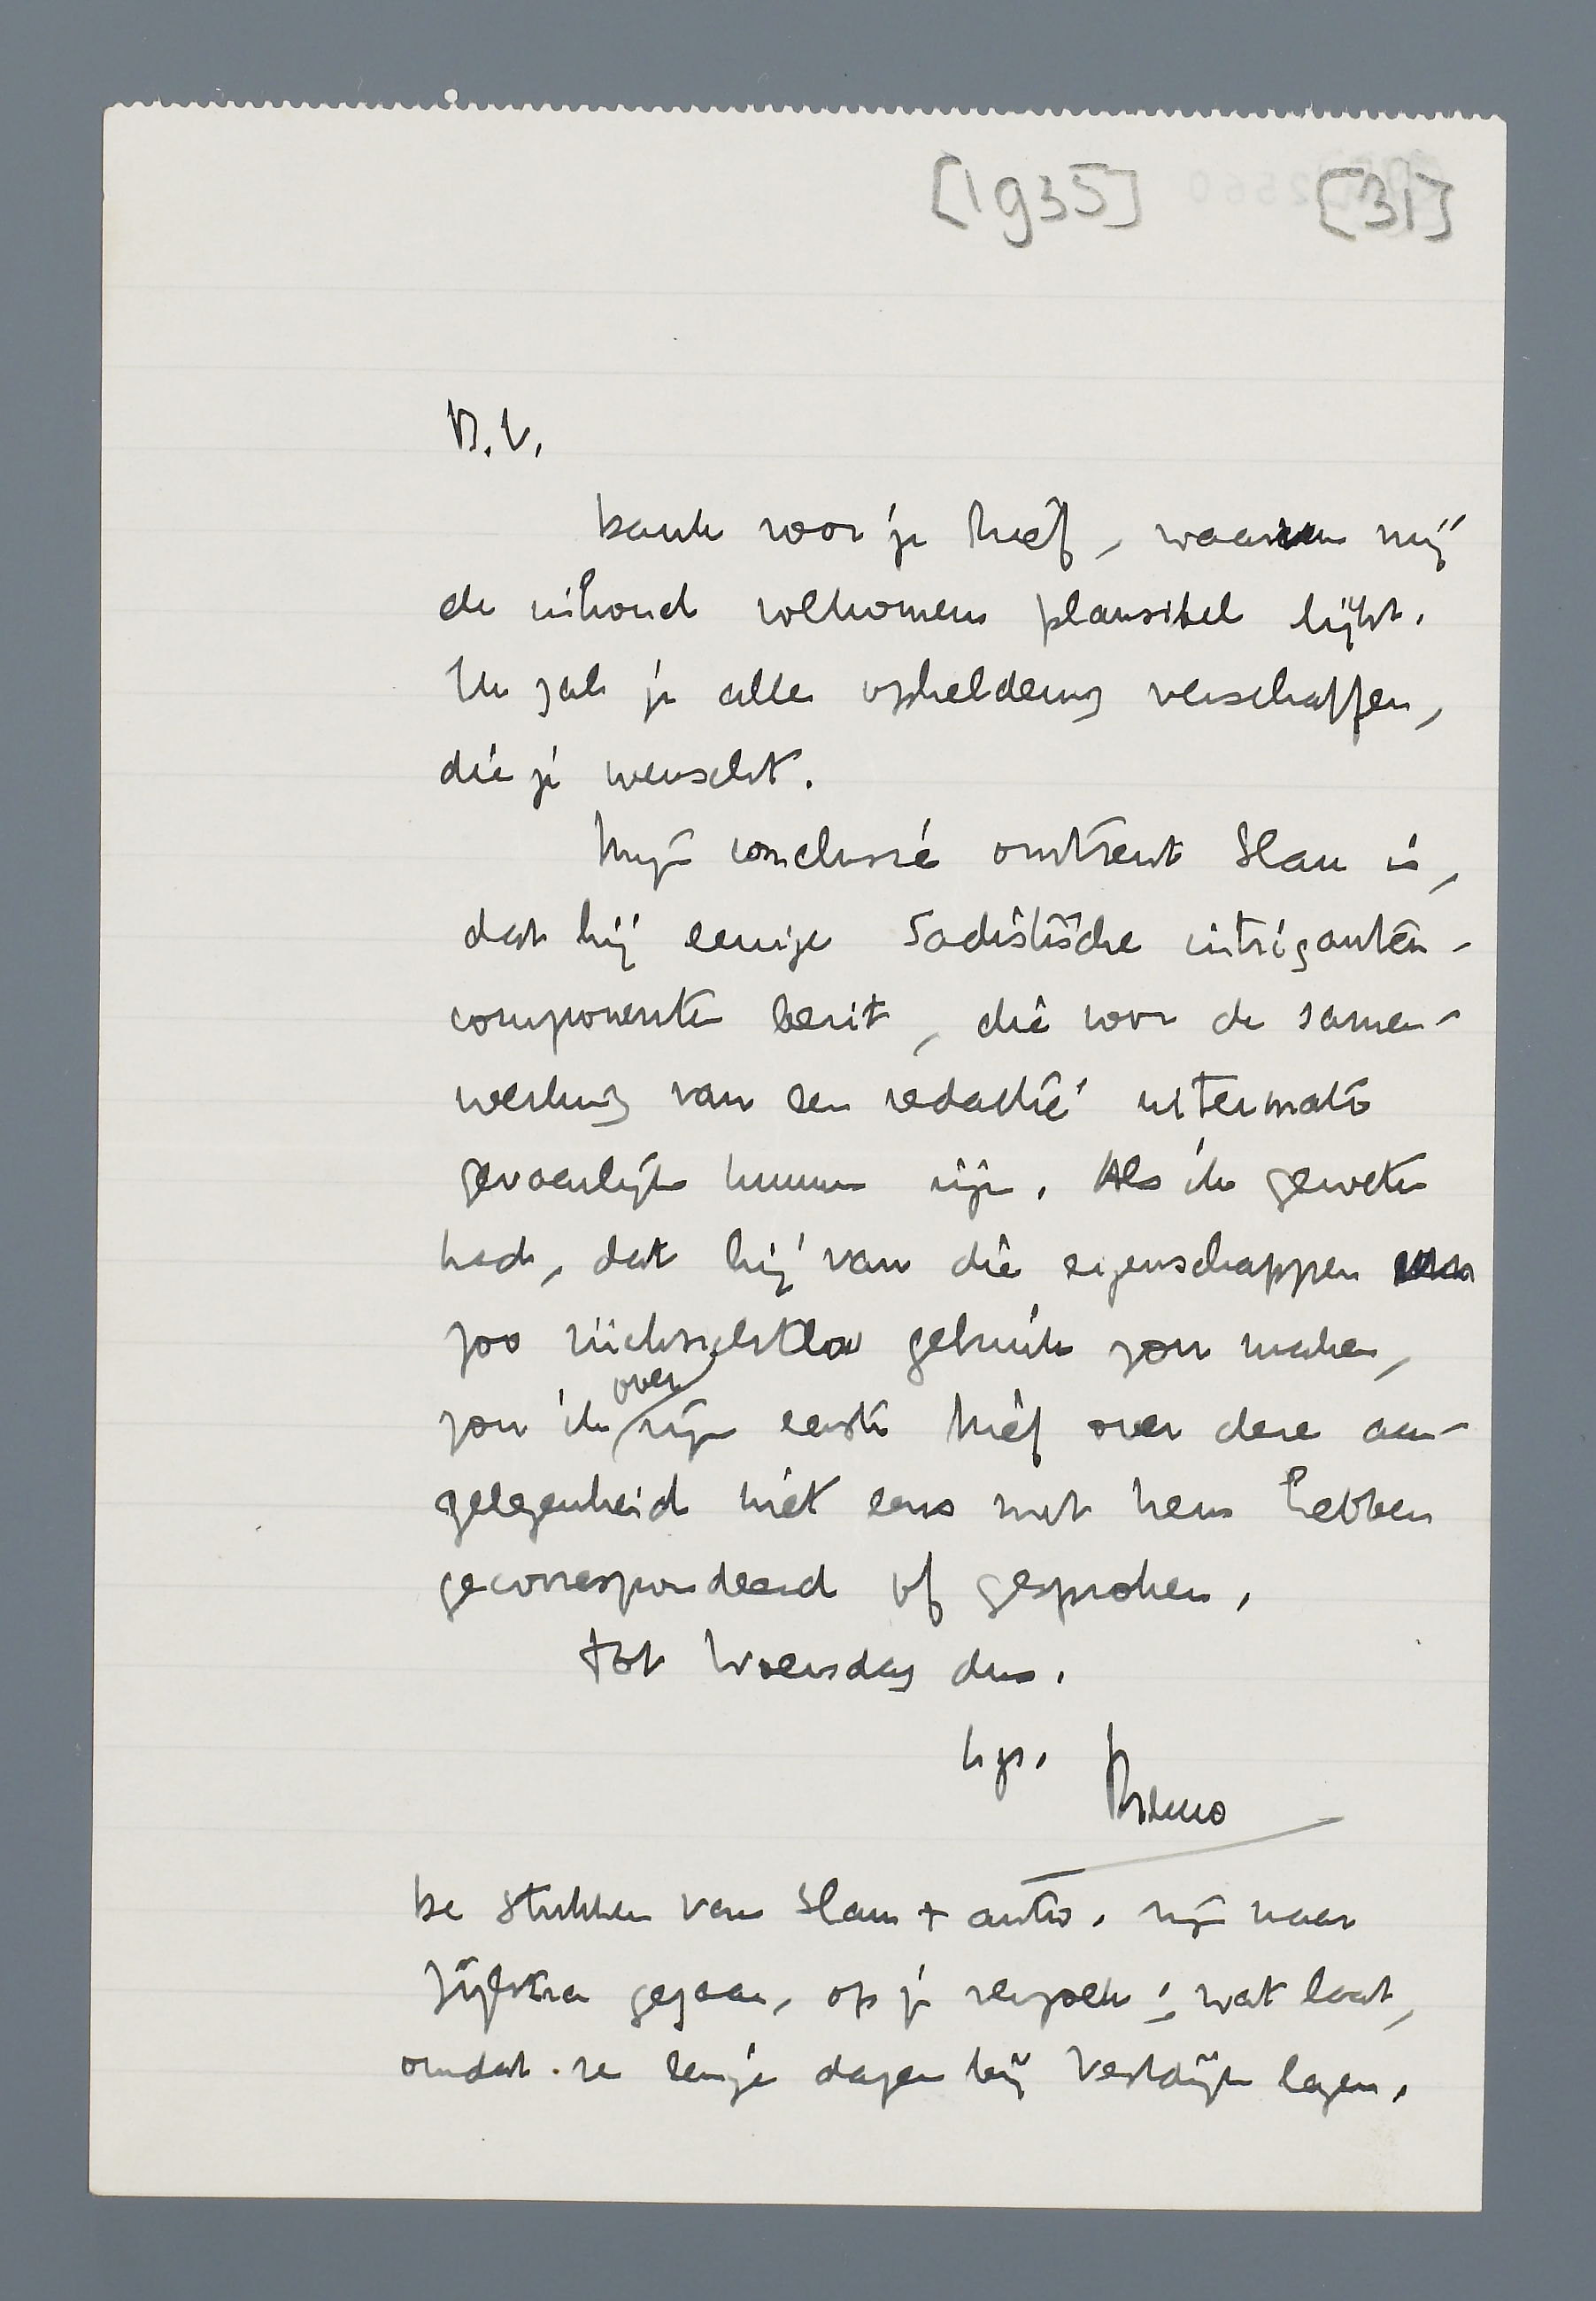 [1935] [31]
B.V.
Dank voor je brief, waarvan mij
de inhoud volkomen plausibel lijkt.
Ik zal je alle opheldering verschaffen,
die je wenscht.
Mijn conclusie omtrent Slau is,
dat hij eenige sadistische intriganten-
componenten bezit, die voor de samen-
werking van een redactie uitermate
gevaarlijk kunnen zijn. Als ik geweten
had, dat hij van die eigenschappen
zoo rücksichtlos gebruik zou maken,
zou ik over zijn eerste brief over deze aan-
gelegenheid niet eens met hem hebben
gecorrespondeerd of gesproken.
Tot Woensdag dus.
h.gr. Menno
De stukken van Slau + antw. zijn naar
Zijlstra gegaan, op je verzoek; wat laat,
omdat ze eenige dagen bij Vestdijk lagen.